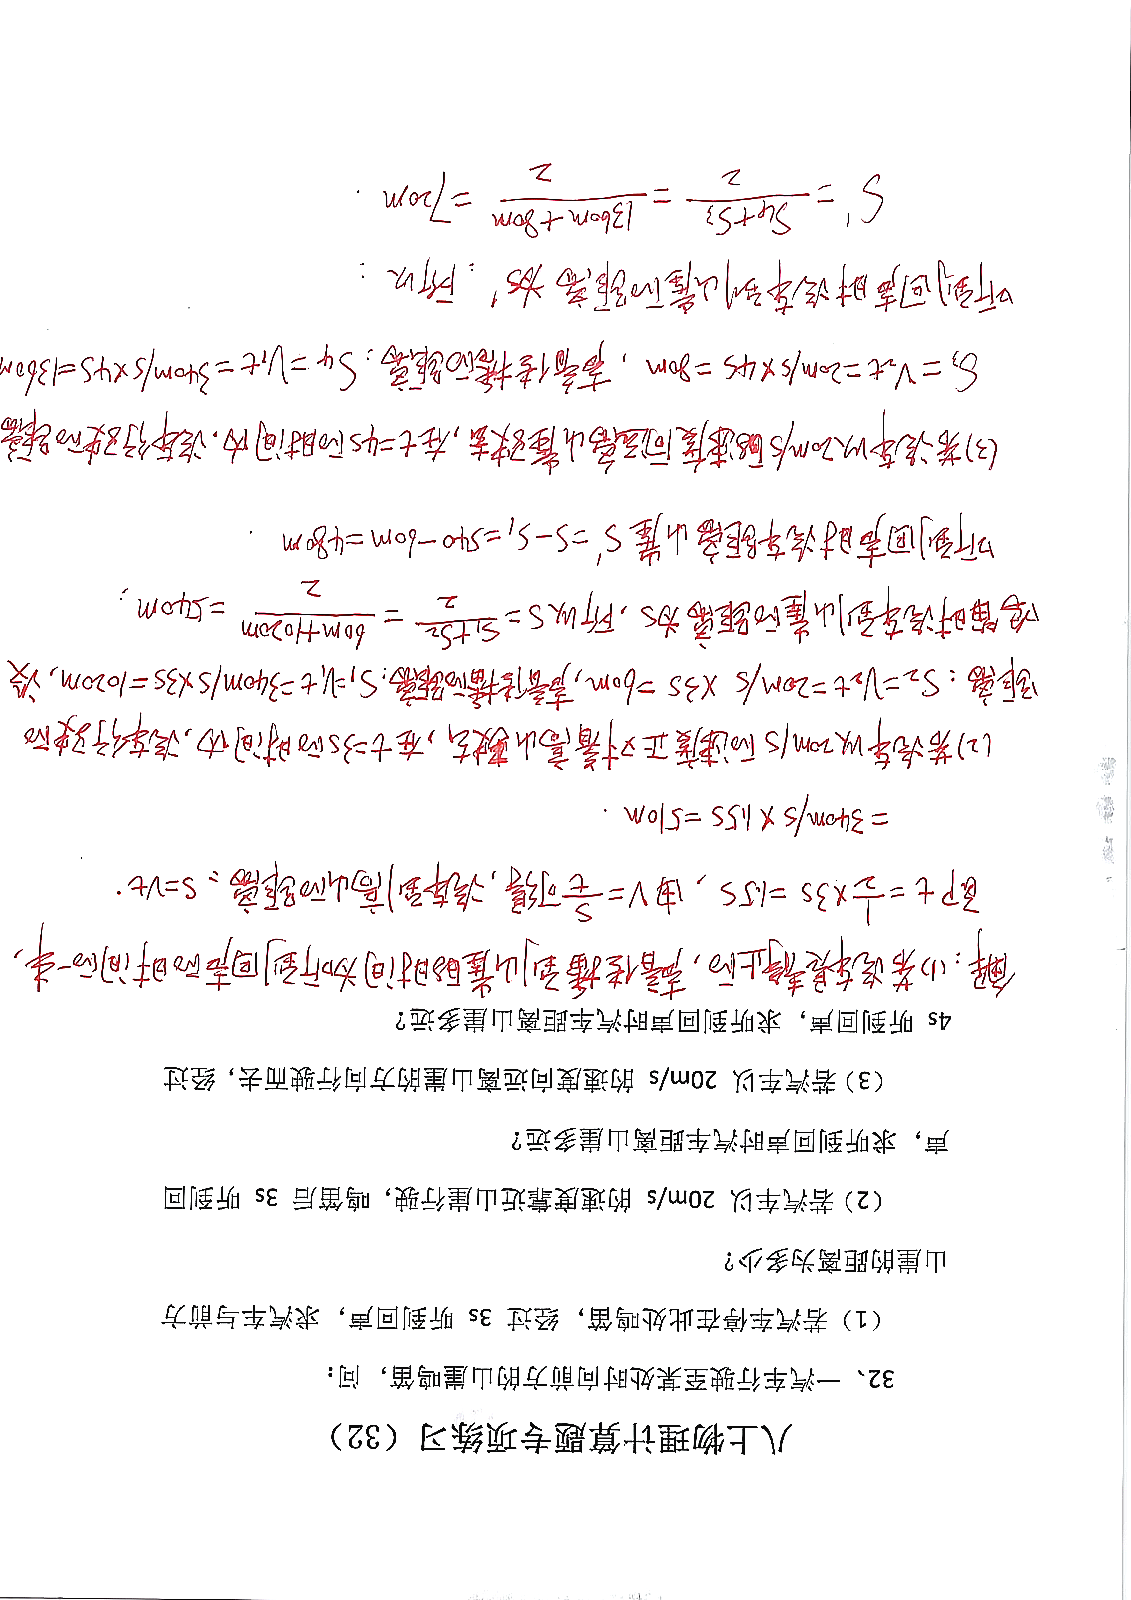 八上物理计算题专项练习（32）
32、一汽车行驶至某处时向前方的山崖鸣笛，问：
（1）若汽车停在此处鸣笛，经过 3s 听到回声，求汽车与前方
山崖的距离为多少？
（2）若汽车以 20m/s 的速度靠近山崖行驶，鸣笛后 3s 听到回
声，求听到回声时汽车距离山崖多远？
（3）若汽车以 20m/s 的速度向远离山崖的方向行驶而去，经过
4s 听到回声，求听到回声时汽车距离山崖多远？
解：(1)若汽车是静止的，声音传播到山崖的时间为听到回声的时间的一半，
即 t=1/2×3s=1.5s，由V=S/t可得，汽车到高山的距离：S=Vt.
=340m/s×1.5s=510m.
(2)若汽车以20m/s的速度正对着高山驶去，在t=3s的时间内，汽车行驶的
距离：S₂=V₂t=20m/s×3s=60m，声音传播的距离：S₁=V₁t=340m/s×3s=1020m，设
鸣笛时汽车到山崖的距离为S，所以S=(S₁+S₂)/2=(60m+1020m)/2=540m；
听到回声时汽车距离山崖S'=S-S₁=540-60m=480m.
(3)若汽车以20m/s的速度向远离山崖驶去，在t=4s的时间内，汽车行驶的距离
S₃=V₂t=20m/s×4s=80m，声音传播的距离：S4=V₁t=340m/s×4s=1360m
听到回声时汽车到山崖的距离为S'；所以：
S'=(S4+S3)/2=(1360m+80m)/2=720m.